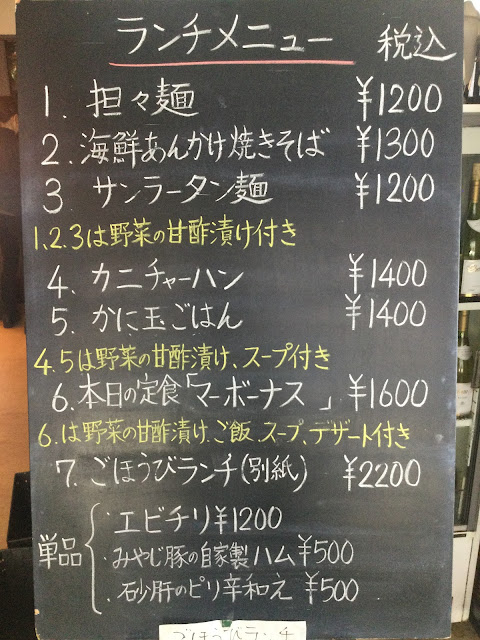 ランチメニュー 税込
1. 担々麺 ¥1200
2. 海鮮あんかけ焼きそば ¥1300
3 サンラータン麺 ¥1200
1,2,3は野菜の甘酢漬け付き
4. カニチャーハン ¥1400
5. かに玉ごはん ¥1400
4.5は野菜の甘酢漬け、スープ付き
6.本日の定食「マーボーナス 」¥1600
6.は野菜の甘酢漬け、ご飯、スープ、デザート付き
7. ごほうびランチ(別紙) ¥2200
単品
・エビチリ¥1200
・みやじ豚の自家製ハム¥500
・砂肝のピリ辛和え ¥500
ごほうびランチ